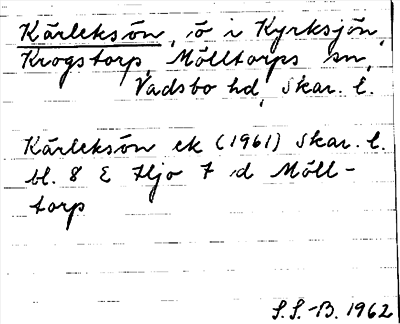 Kärleksön, ö i Kyrksjön,
Krogstorp, Mölltorps sn,
Vadsbo hd, Skar. l.
Kärleksön ek (1961) Skar. l.
bl. 8 E Hjo 7 d Möll-
torp
S.S.-B. 1962